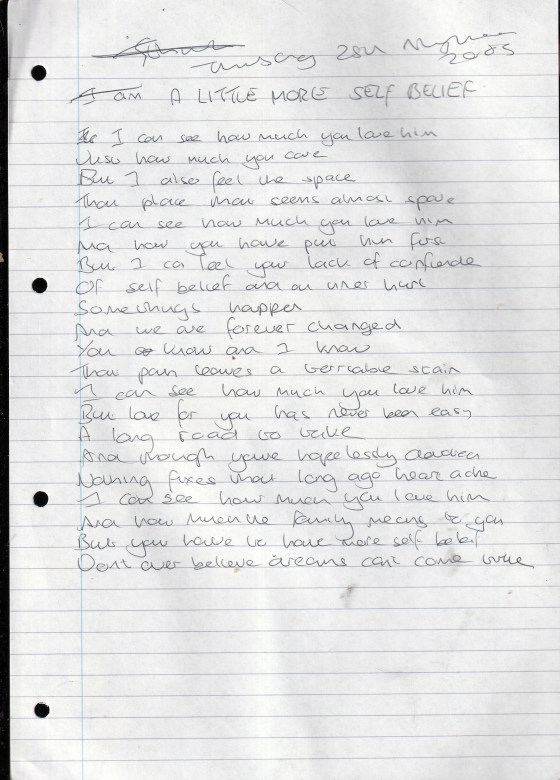 2005
I am A LITTLE MORE SELF BELIEF
I can see how much you love him
Also how much you care
But I also feel the space
That place that seems almost spare
I can see how much you love him
And how you have put him first
But I can feel your lack of confidence
Of self belief and an inner hurt
Somethings happen
And we are forever changed
You know and I know
That pain leaves a terriable stain
I can see how much you love him
But love for you has never been easy
A long road to take
And though youve hopelessly
Nothing fixes that long ago heart ache
I can see how much you love him
And how much the family means to you
But you have to have more self belief
Dont ever believe dreams cant come true